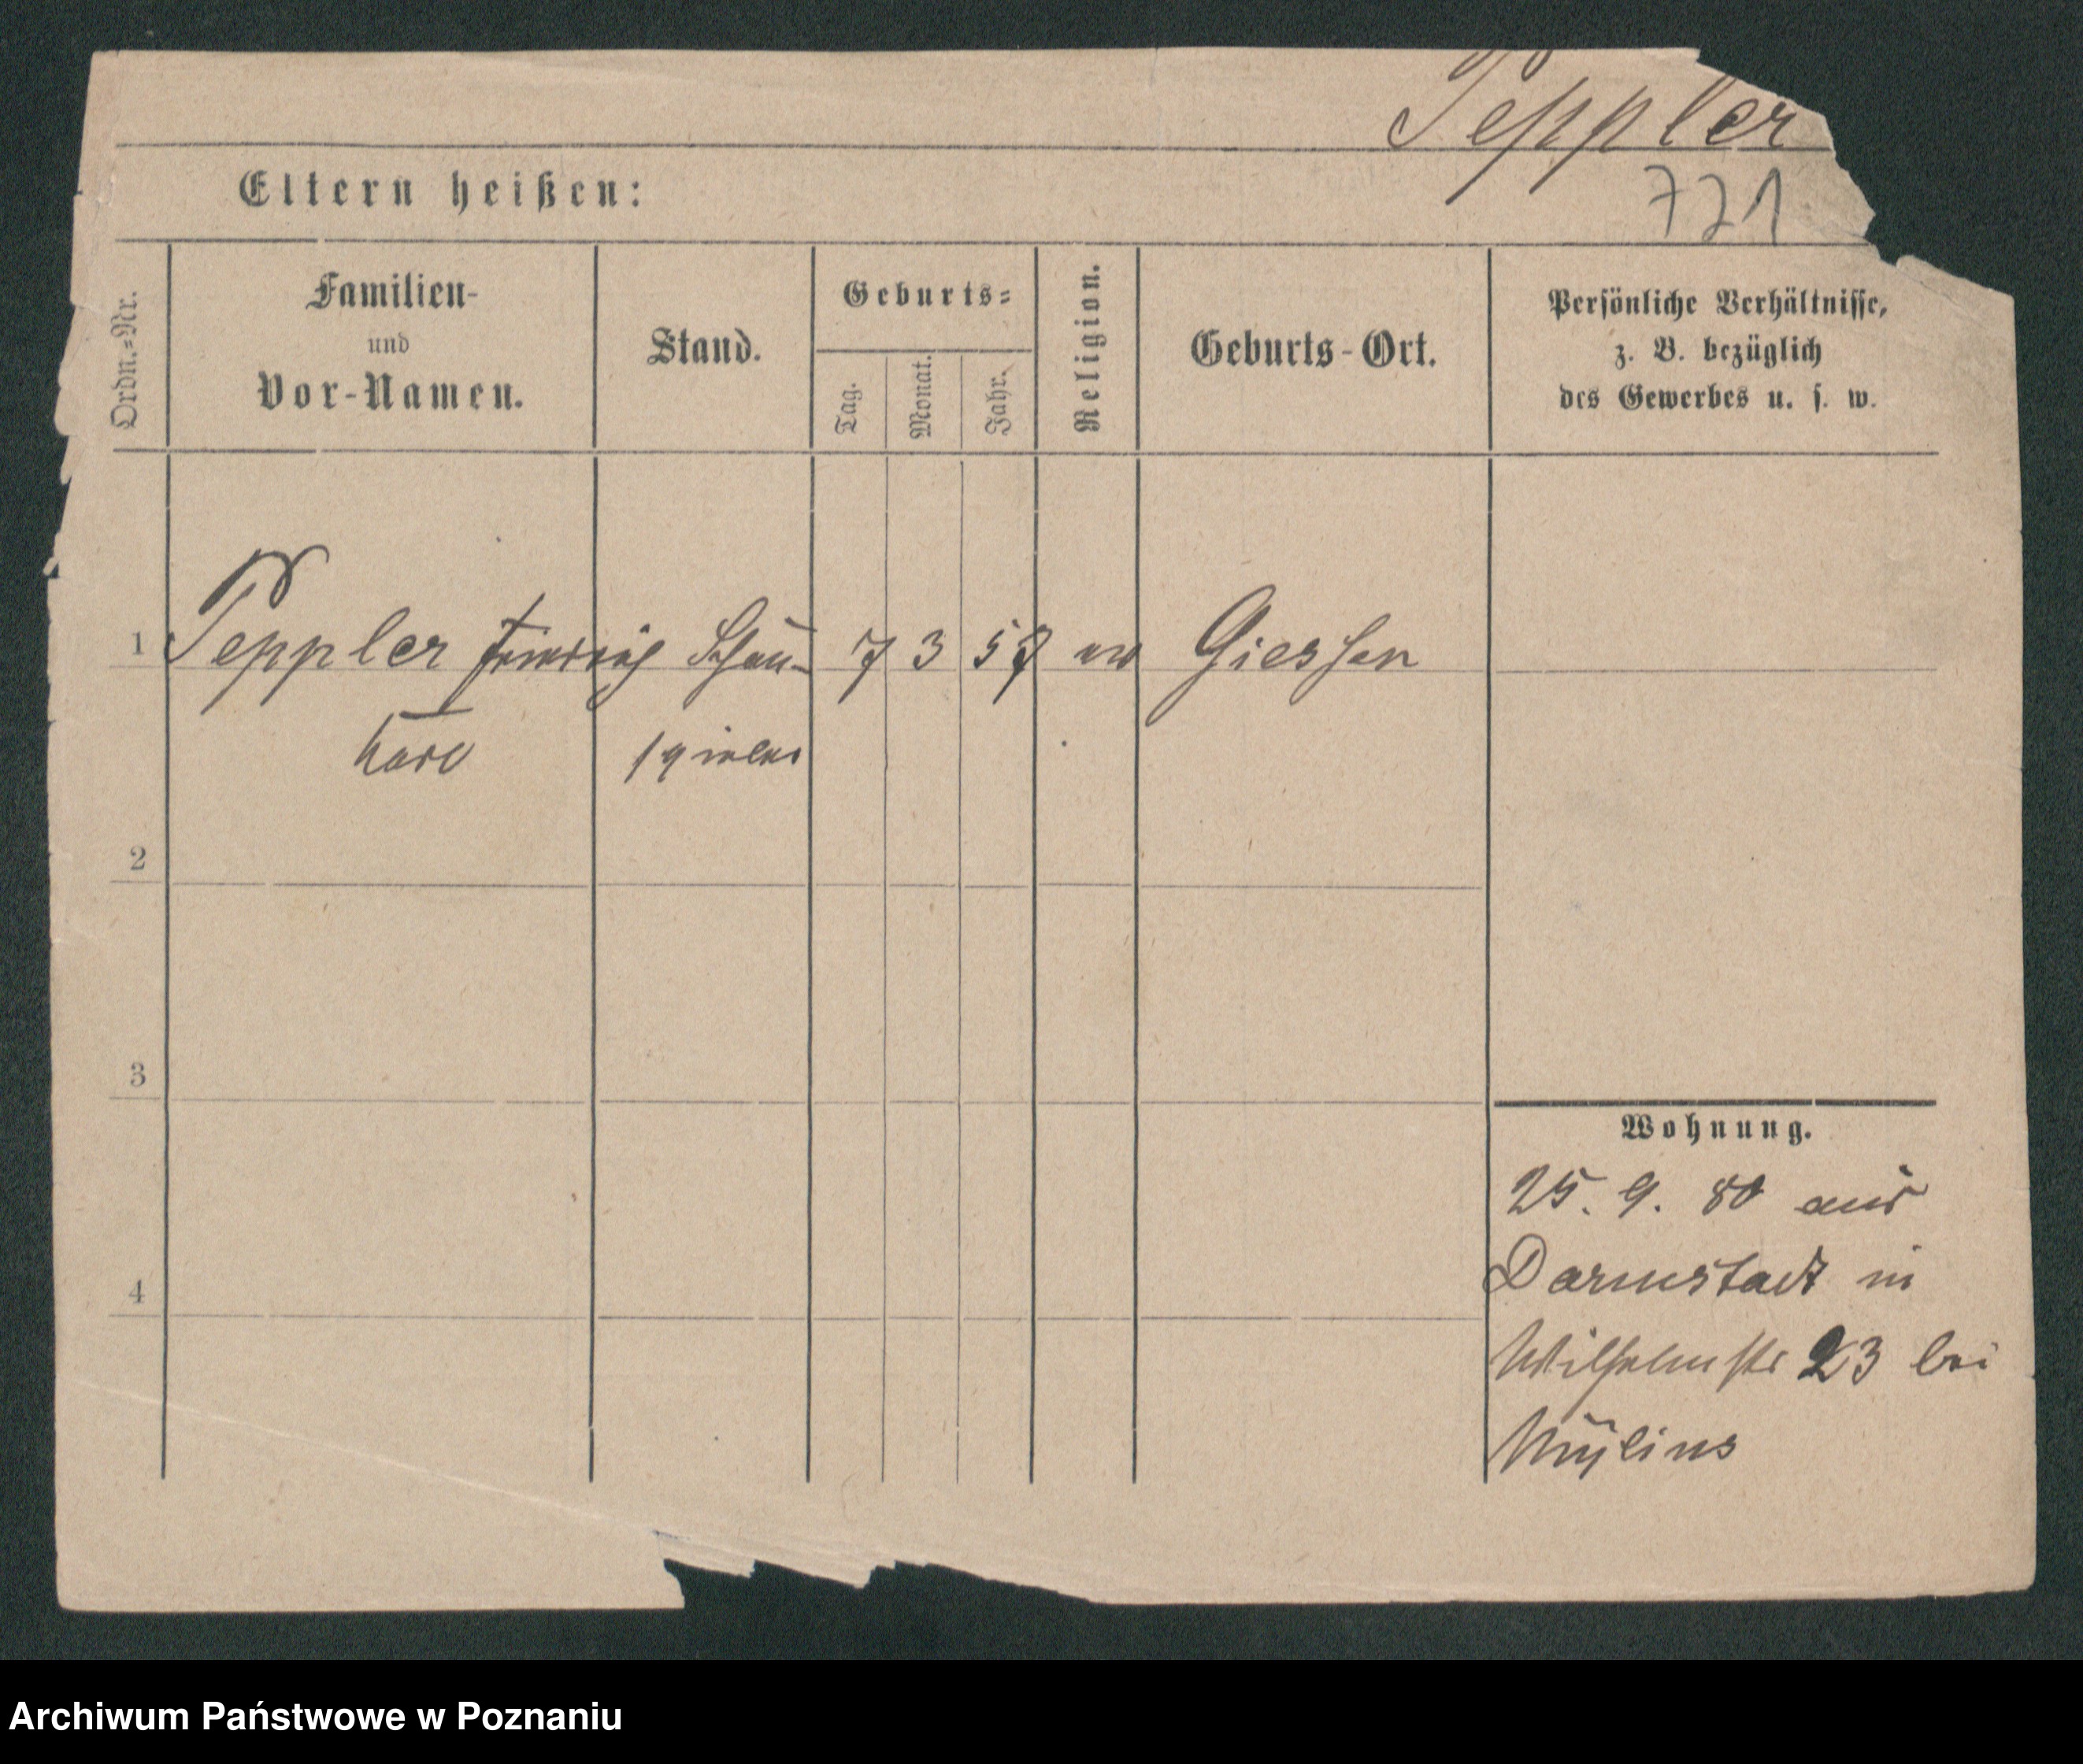 Peppler
771
Eltern heißen:
Ordn.=Nr.
Familien-
und
Vor-Namen.
Stand.
Geburts=
Tag.
Monat.
Jahr.
Religion.
Geburts-Ort.
Persönliche Verhältnisse,
z. B. bezüglich
des Gewerbes u. s. w.
1 Peppler Friedrich Schau- 7 3 57 ev Giessen
Karl spieler
2
3
4
Wohnung.
25. 9. 80 aus
Darmstadt in
Wilhelmstr 23 bei
Mylius
Archiwum Państwowe w Poznaniu